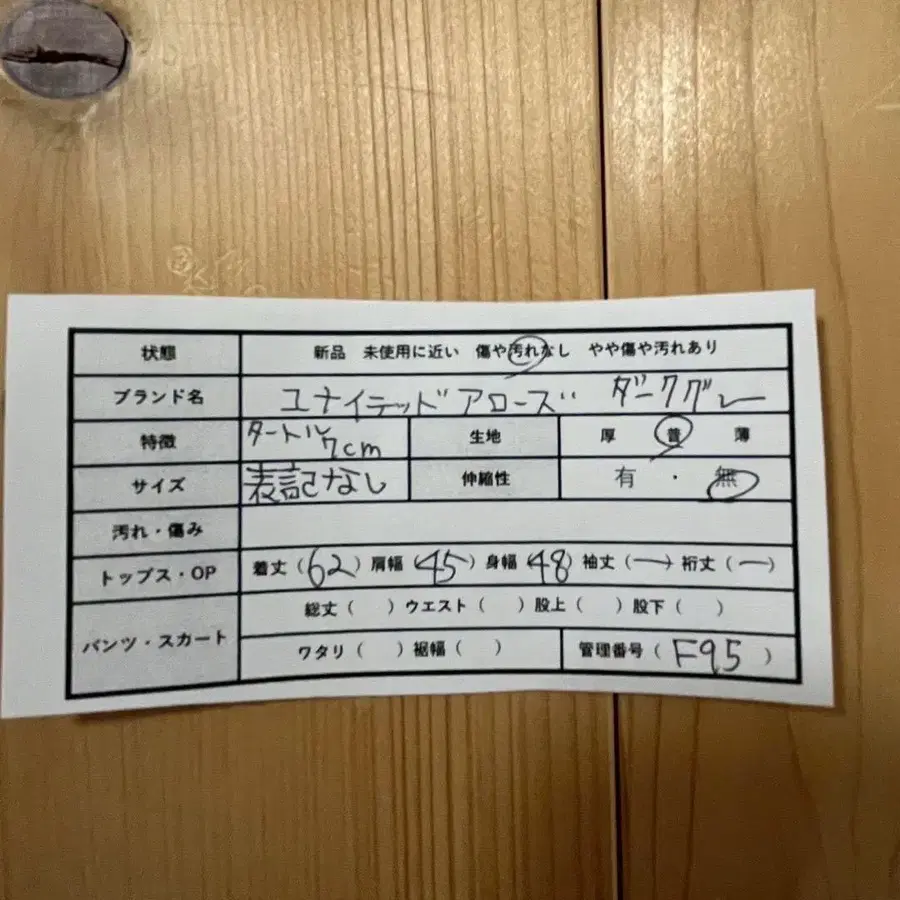 状態 新品 未使用に近い 傷や汚れなし やや傷や汚れあり
ブランド名 ユナイテッドアローズ ダークグレー
特徴 タートル 7cm 生地 厚 普 薄
サイズ 表記なし 伸縮性 有 ・ 無
汚れ・傷み
トップス・OP 着丈(62)肩幅(45)身幅(48)袖丈(ー)裄丈(ー)
パンツ・スカート 総丈( )ウエスト( )股上( )股下( )
ワタリ( )裾幅( ) 管理番号(F95)